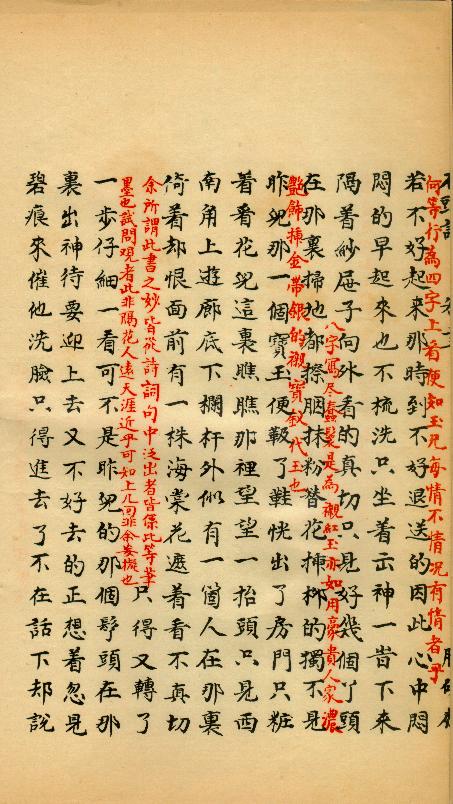 何等行為四字上看便知玉兄每情不情况有情者乎
若不好起來那時到不好退送的因此心中悶
悶的早起來也不梳洗只坐着出神一旹下來
隔着紗屉子向外看的真切只見好幾個丫頭
八字寫尽蠢鬟是為襯紅玉亦如用豪貴人家濃
在那裏掃地都擦胭抹粉替花插柳的獨不見
艶飾插金帶銀的襯寶釵代玉也
昨兒那一個寶玉便靸了鞋恍出了房門只粧
着看花兒這裏瞧瞧那裡望望一抬頭只見西
南角上遊廊底下欄杆外似有一箇人在那裏
倚着却恨面前有一株海棠花遮着看不真切
余所謂此書之妙皆從詩詞句中泛出者皆係此等筆
墨也試問觀者此非隔花人遠天涯近乎可知上几回非余妄擬也
只得又轉了
一步仔細一看可不是昨兒的那個髩頭在那
裏出神待要迎上去又不好去的正想着忽見
碧痕來催他洗臉只得進去了不在話下却說